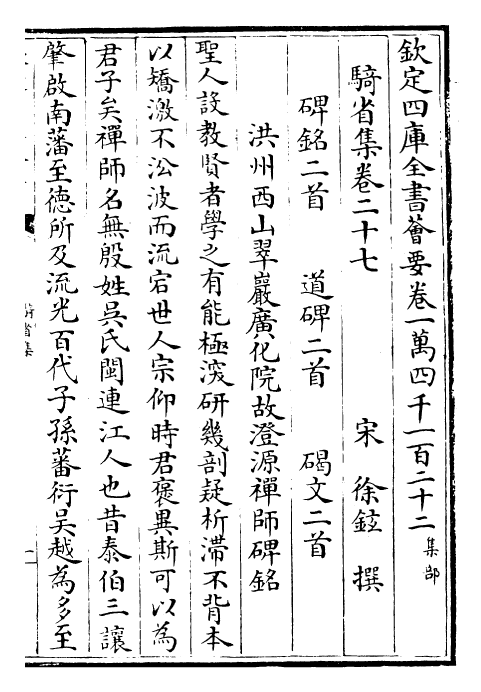 欽定四庫全書薈要卷一萬四千一百二十二 集部
騎省集卷二十七 宋 徐鉉 撰
碑銘二首 道碑二首 碣文二首
洪州西山翠巖廣化院故澄源禪師碑銘
聖人設教賢者學之有能極深研幾剖疑析滯不背本
以矯激不㳂波而流宕世人宗仰時君褒異斯可以為
君子矣禪師名無殷姓吳氏閩連江人也昔泰伯三讓
肇啟南藩至德所及流光百代子孫蕃衍吳越為多至
騎省集